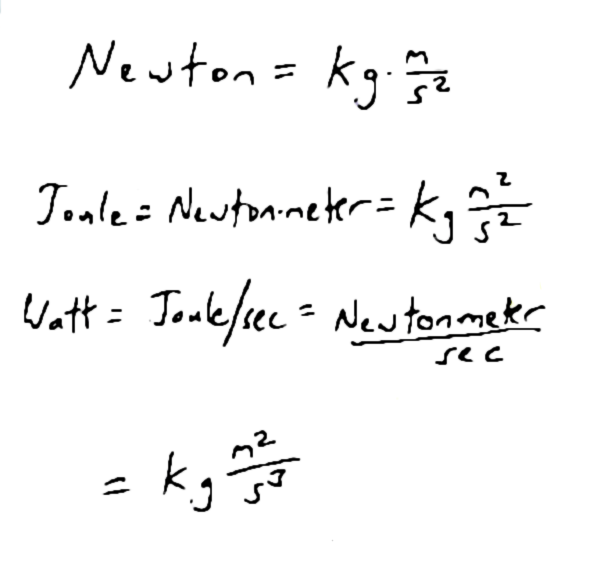 Newton = kg · m/s²
Joule = Newton·meter = kg m²/s²
Watt = Joule/sec = Newtonmeter/sec
= kg m²/s³